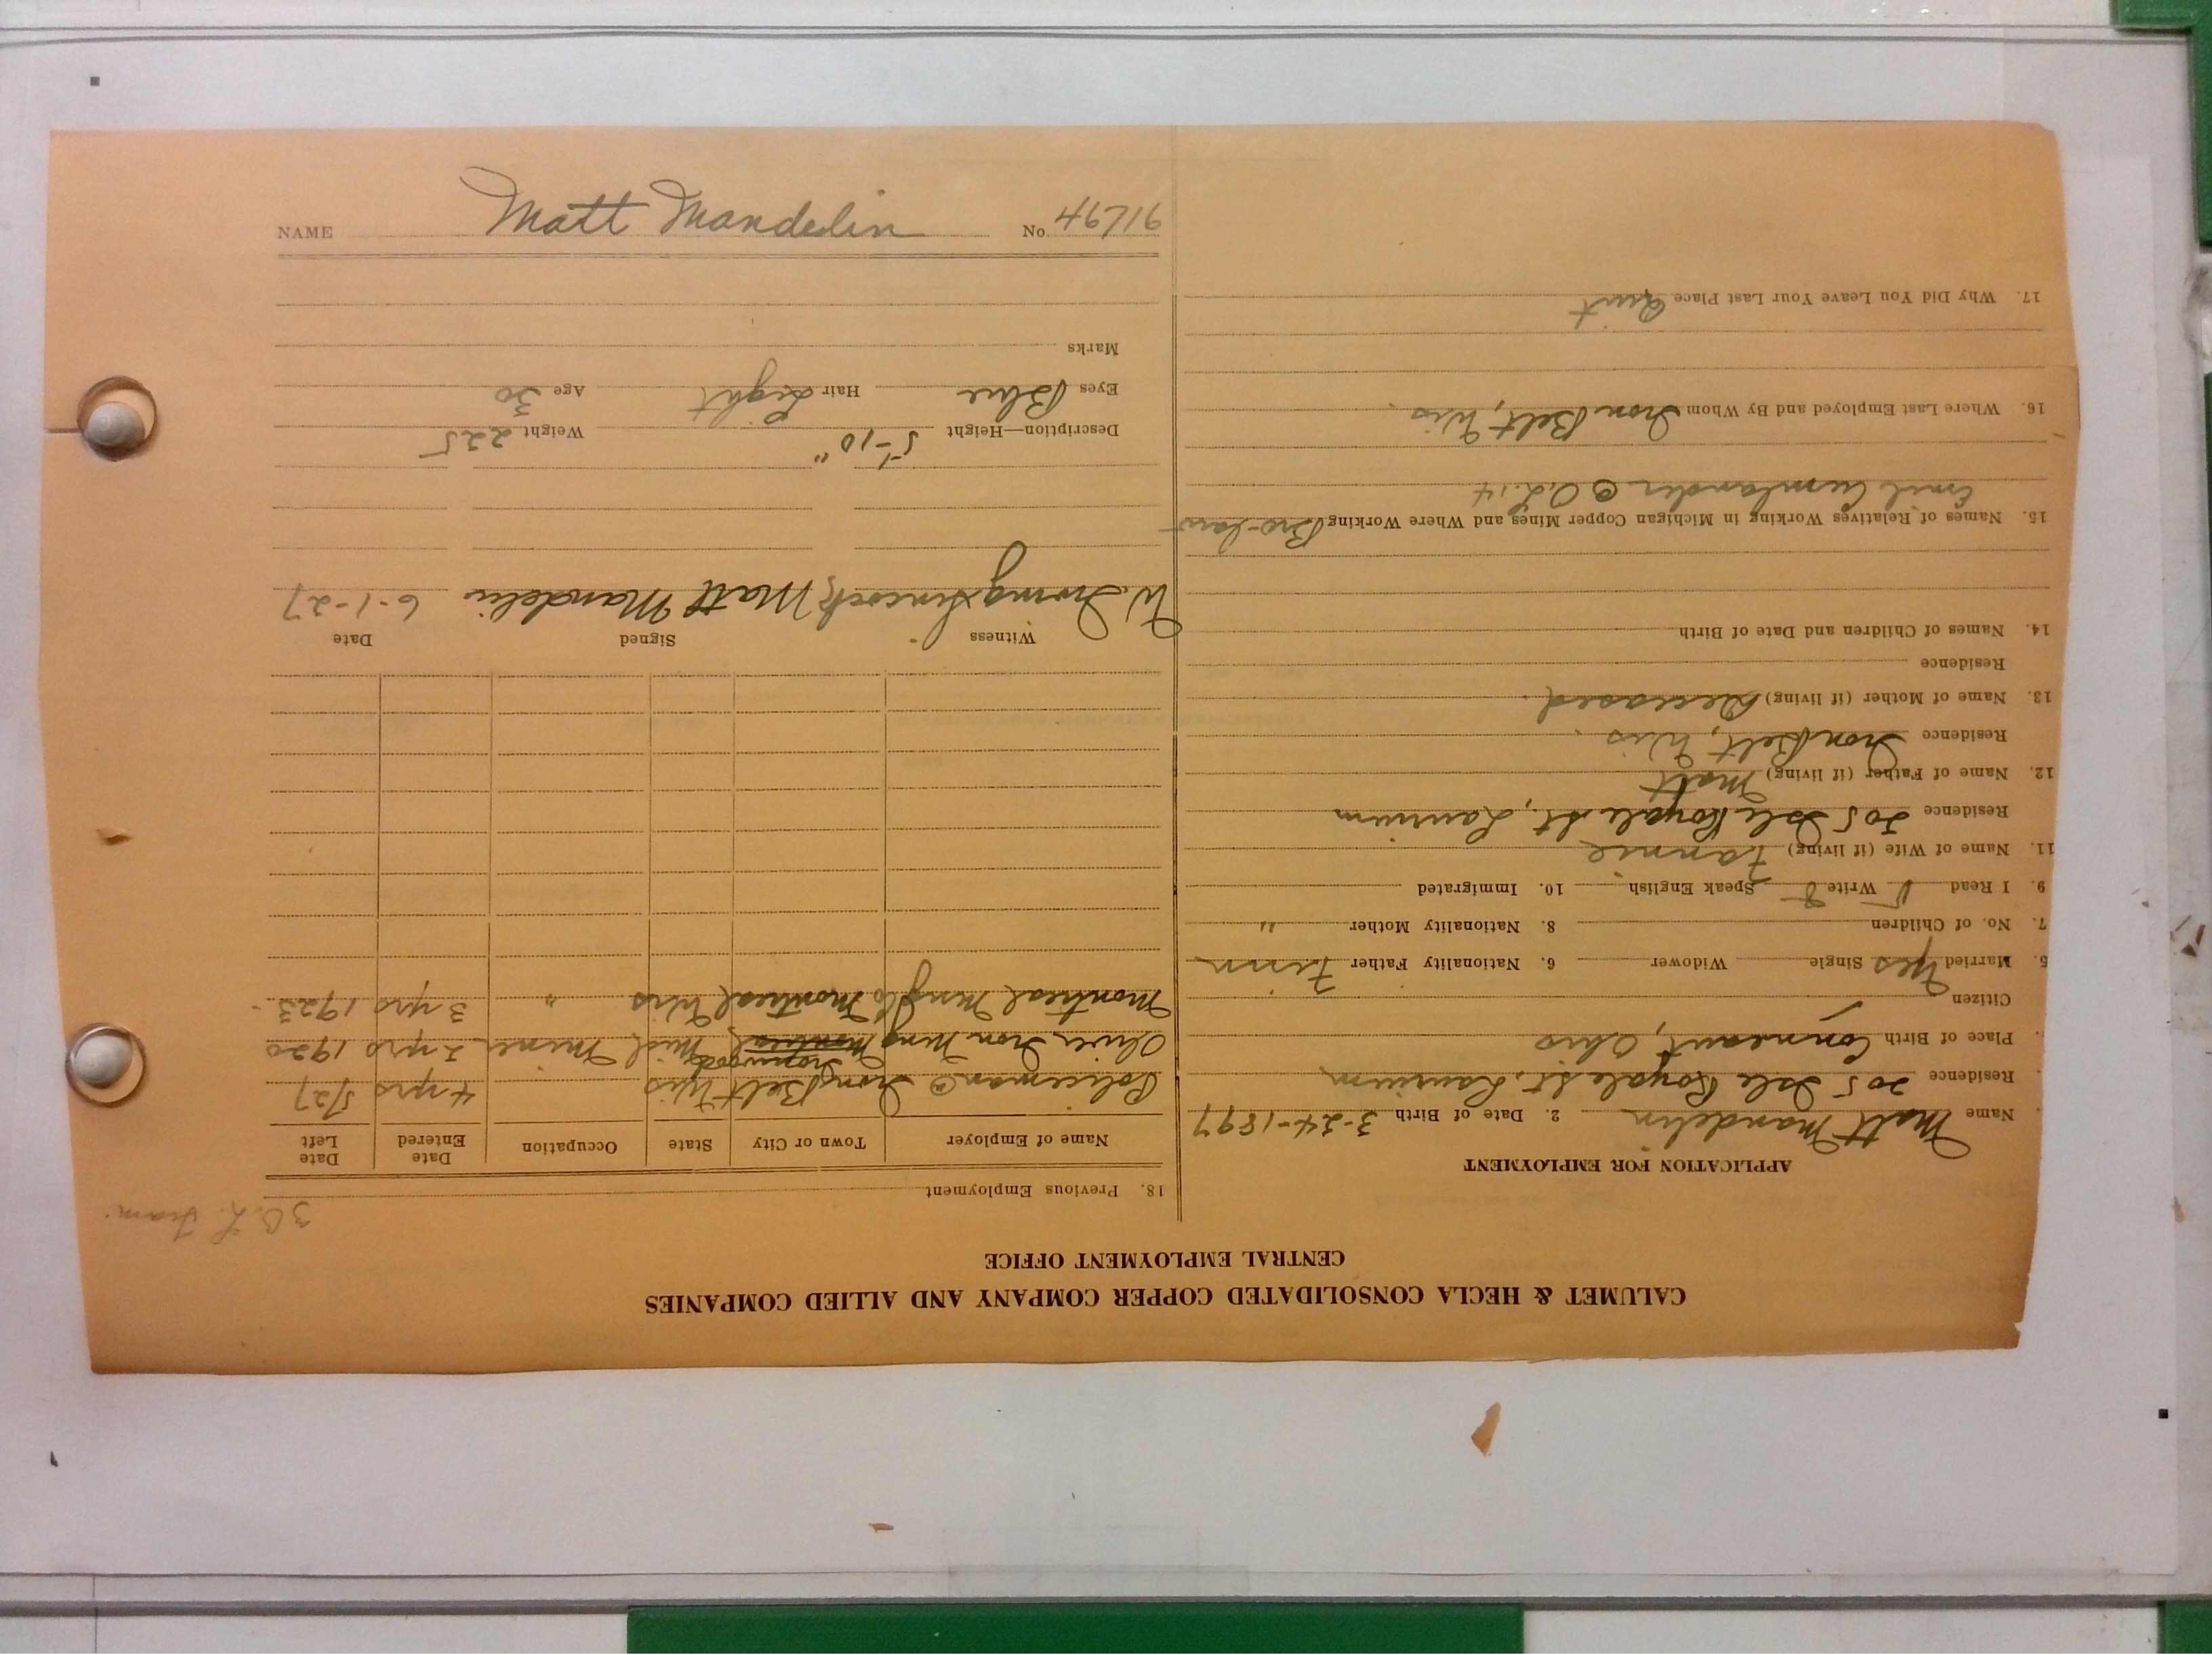 CALUMET & HECLA CONSOLIDATED COPPER COMPANY AND ALLIED COMPANIES
CENTRAL EMPLOYMENT OFFICE
APPLICATION FOR EMPLOYMENT
Name Matt Mandelin 2. Date of Birth 3-24-1897
Residence 205 Isle Royale St, Laurium
Place of Birth Conneaut, Ohio
Citizen
5. Married Yes Single Widower 6. Nationality Father Finn
7. No. of Children 8. Nationality Mother "
9. I Read Write Speak English 10. Immigrated
11. Name of Wife (if living) Fannie
Residence 205 Isle Royale St, Laurium
12. Name of Father (if living) Matt
Residence Iron Belt, Wis.
13. Name of Mother (if living) Deceased.
Residence
14. Names of Children and Date of Birth
15. Names of Relatives Working in Michigan Copper Mines and Where Working Bro-law
Emil @ O.L. 14
16. Where Last Employed and By Whom Iron Belt, Wis.
17. Why Did You Leave Your Last Place Quit
3 O.L. Tram.
18. Previous Employment
Name of Employer Town or City State Occupation Date Entered Date Left
Policeman @ Iron Belt Wis 4 yrs 5/27
Oliver Iron Mng Montreal Ironwood Mich Miner 2 yrs 1920
Montreal Mng Co Montreal Wis " 3 yrs 1923.
Witness Signed Date
W. Irving Sincock Matt Mandelin 6-1-27
Description—Height 5'-10" Weight 225
Eyes Blue Hair Light Age 30
Marks
NAME Matt Mandelin No.